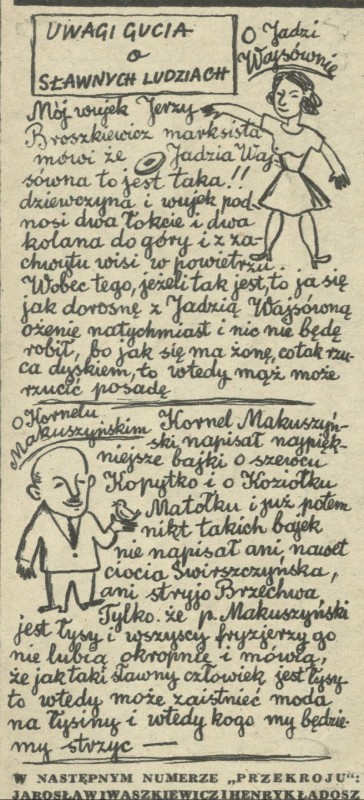 UWAGI GUCIA
o
SŁAWNYCH LUDZIACH
O Jadzi
Wajsównie
Mój wujek Jerzy
Broszkiewicz marksista
mówi że Jadzia Waj-
sówna to jest taka!!
dziewczyna i wujek pod-
nosi dwa łokcie i dwa
kolana do góry i z za-
chwytu wisi w powietrzu.
Wobec tego, jeżeli tak jest, to ja się
jak dorosnę z Jadzią Wajsówną
ożenię natychmiast i nic nie będę
robił, bo jak się ma żonę, co tak rzu-
ca dyskiem, to wtedy mąż może
rzucić posadę
O Kornelu
Makuszyńskim
Kornel Makuszyń-
ski napisał najpięk-
niejsze bajki o szewcu
Kopytko i o Koziołku
Matołku i już potem
nikt takich bajek
nie napisał ani nawet
ciocia Świrszczyńska,
ani stryjo Brzechwa
Tylko, że p. Makuszyński
jest łysy i wszyscy fryzjerzy go
nie lubią okropnie i mówią,
że jak taki sławny człowiek jest łysy
to wtedy może zaistnieć moda
na łysiny i wtedy kogo my będzie-
my strzyc —
W NASTĘPNYM NUMERZE „PRZEKROJU":
JAROSŁAW IWASZKIEWICZ I HENRYK ŁADOSZ